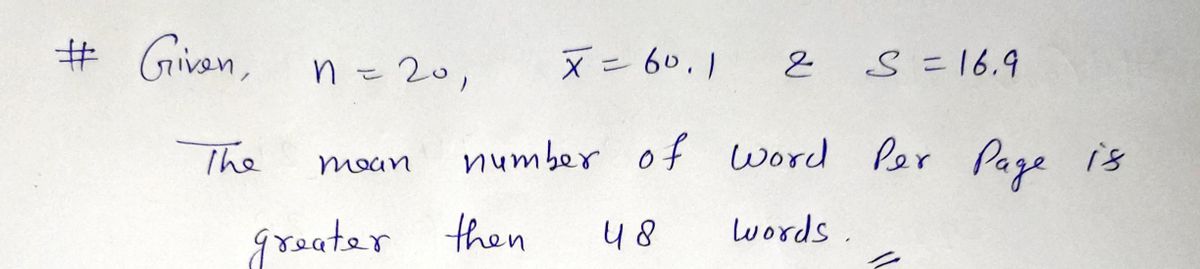 # Given, n = 20, x̅ = 60.1 & S = 16.9
The mean number of word Per Page is
greater then 48 words.